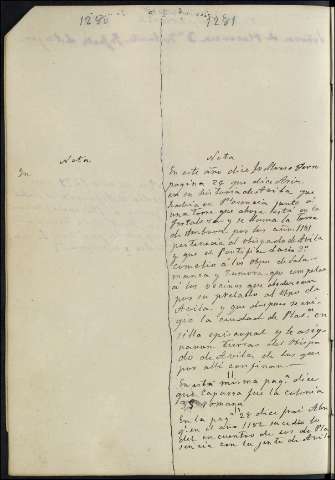 1280
1281
Nota
En
Nota
En este año dice Fr Alonso Fern
pagina 24 que dice Ariz
en su historia de Avila que
habia en Plasencia junto á
una torre que ahora está en la
fortaleza y se llama la torre
de Ambroz, por los años 1181
pertenecia al obispado de Avila
y que el Pontifice Lucio 3º
cometio á los obpos de Sala-
manca y Zamora que compelan
á los vecinos que obedezcan
por su prelado al obpo de
Avila, y que despues se eri-
gio la ciudad de Plasª en
silla episcopal y le asig-
naron tierras del obispa
do de Avila de las que
por alli confinan
En esta misma pagª dice
que Caparra fue la colonia
romana
En la pagª 28 dice frai Alon
qº en el año 1182 sucedio la
del encuentro de los de Pla
sencia con la gente de Avila